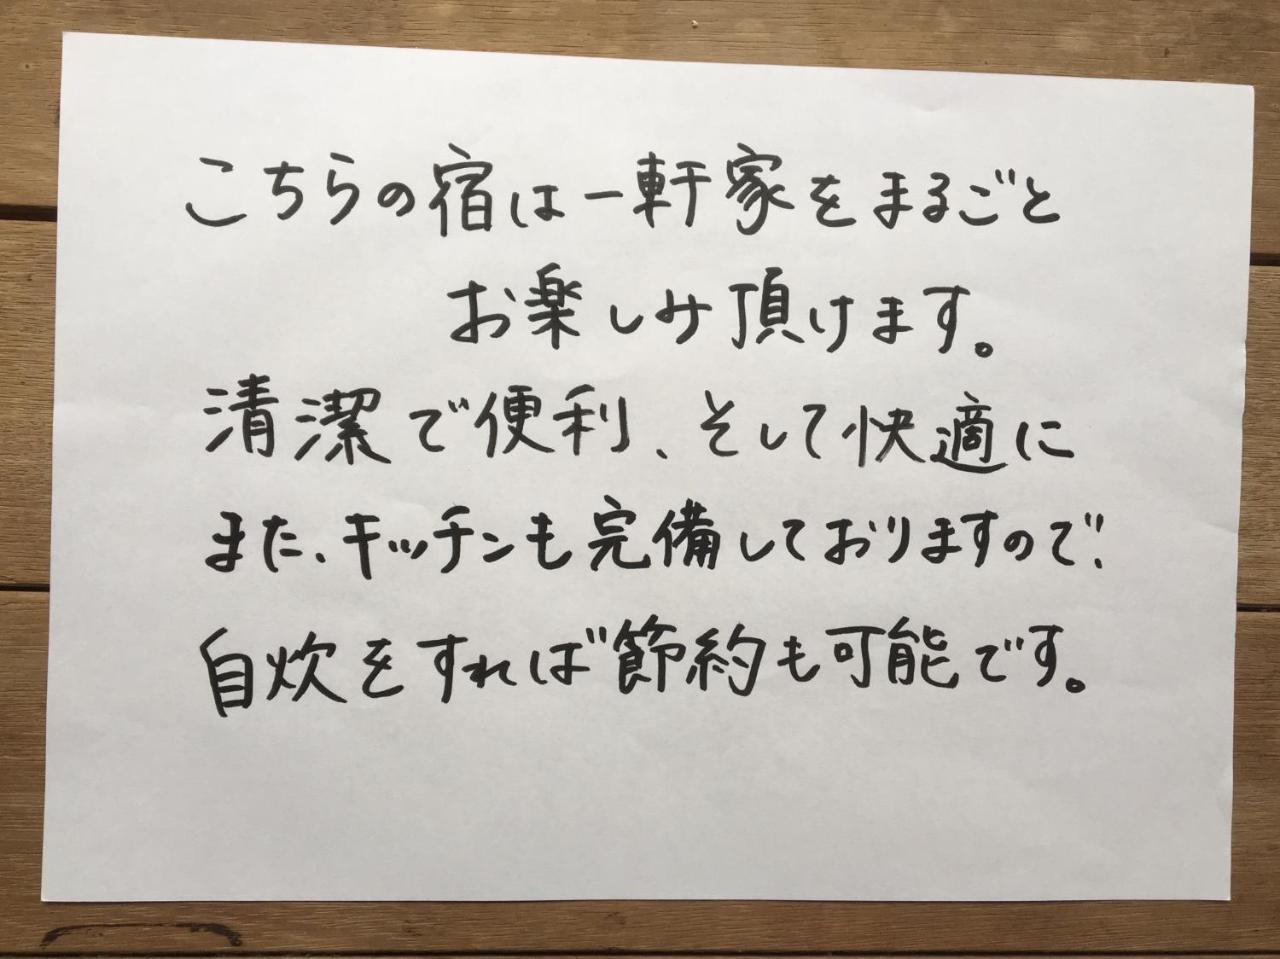 こちらの宿は一軒家をまるごと
お楽しみ頂けます。
清潔で便利、そして快適に
また、キッチンも完備しておりますので、
自炊をすれば節約も可能です。